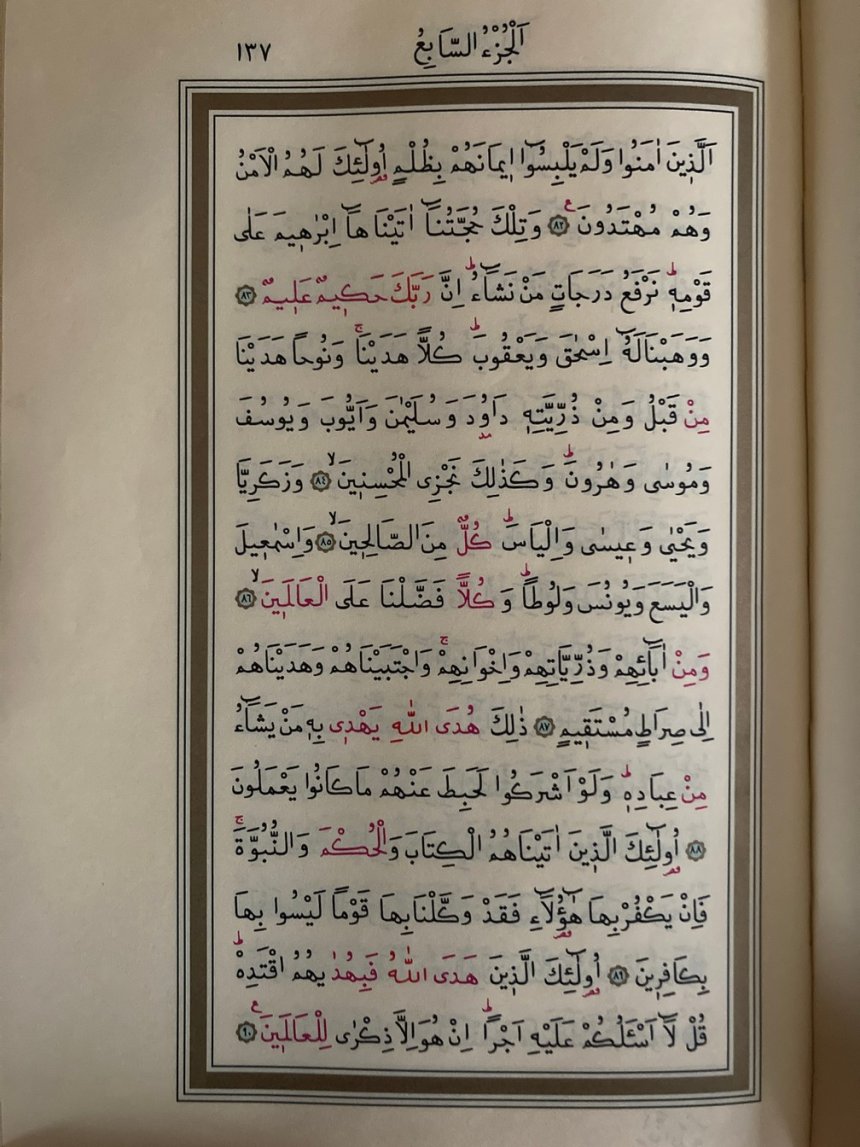 اَلْجُزْءُ السَّابِعُ ١٣٧
اَلَّذٖينَ اٰمَنُوا وَلَمْ يَلْبِسُٓوا اٖيمَانَهُمْ بِظُلْمٍ اُو۬لٰٓئِكَ لَهُمُ الْاَمْنُ
وَهُمْ مُهْتَدُونَ ࣖ ﴿٨٢﴾ وَتِلْكَ حُجَّتُنَٓا اٰتَيْنَاهَٓا اِبْرٰهٖيمَ عَلٰى
قَوْمِهٖؕ نَرْفَعُ دَرَجَاتٍ مَنْ نَشَٓاءُؕ اِنَّ رَبَّكَ حَكٖيمٌ عَلٖيمٌ ﴿٨٣﴾
وَوَهَبْنَا لَهُٓ اِسْحٰقَ وَيَعْقُوبَؕ كُلًّا هَدَيْنَاۚ وَنُوحًا هَدَيْنَا
مِنْ قَبْلُ وَمِنْ ذُرِّيَّتِهٖ دَاوُ۫دَ وَسُلَيْمٰنَ وَاَيُّوبَ وَيُوسُفَ
وَمُوسٰى وَهٰرُونَؕ وَكَذٰلِكَ نَجْزِى الْمُحْسِنٖينَۙ ﴿٨٤﴾ وَزَكَرِيَّا
وَيَحْيٰى وَعٖيسٰى وَاِلْيَاسَؕ كُلٌّ مِنَ الصَّالِحٖينَۙ ﴿٨٥﴾ وَاِسْمٰعٖيلَ
وَالْيَسَعَ وَيُونُسَ وَلُوطًاؕ وَكُلًّا فَضَّلْنَا عَلَى الْعَالَمٖينَۙ ﴿٨٦﴾
وَمِنْ اٰبَٓائِهِمْ وَذُرِّيَّاتِهِمْ وَاِخْوَانِهِمْۚ وَاجْتَبَيْنَاهُمْ وَهَدَيْنَاهُمْ
اِلٰى صِرَاطٍ مُسْتَقٖيمٍ ﴿٨٧﴾ ذٰلِكَ هُدَى اللّٰهِ يَهْدٖى بِهٖ مَنْ يَشَٓاءُ
مِنْ عِبَادِهٖؕ وَلَوْ اَشْرَكُوا لَحَبِطَ عَنْهُمْ مَا كَانُوا يَعْمَلُونَ
﴿٨٨﴾ اُو۬لٰٓئِكَ الَّذٖينَ اٰتَيْنَاهُمُ الْكِتَابَ وَالْحُكْمَ وَالنُّبُوَّةَۚ
فَاِنْ يَكْفُرْ بِهَا هٰٓؤُ۬لَٓاءِ فَقَدْ وَكَّلْنَا بِهَا قَوْمًا لَيْسُوا بِهَا
بِكَافِرٖينَ ﴿٨٩﴾ اُو۬لٰٓئِكَ الَّذٖينَ هَدَى اللّٰهُ فَبِهُدٰيهُمُ اقْتَدِهْؕ
قُلْ لَٓا اَسْـَٔلُكُمْ عَلَيْهِ اَجْرًاؕ اِنْ هُوَ اِلَّا ذِكْرٰى لِلْعَالَمٖينَ ࣖ ﴿٩٠﴾